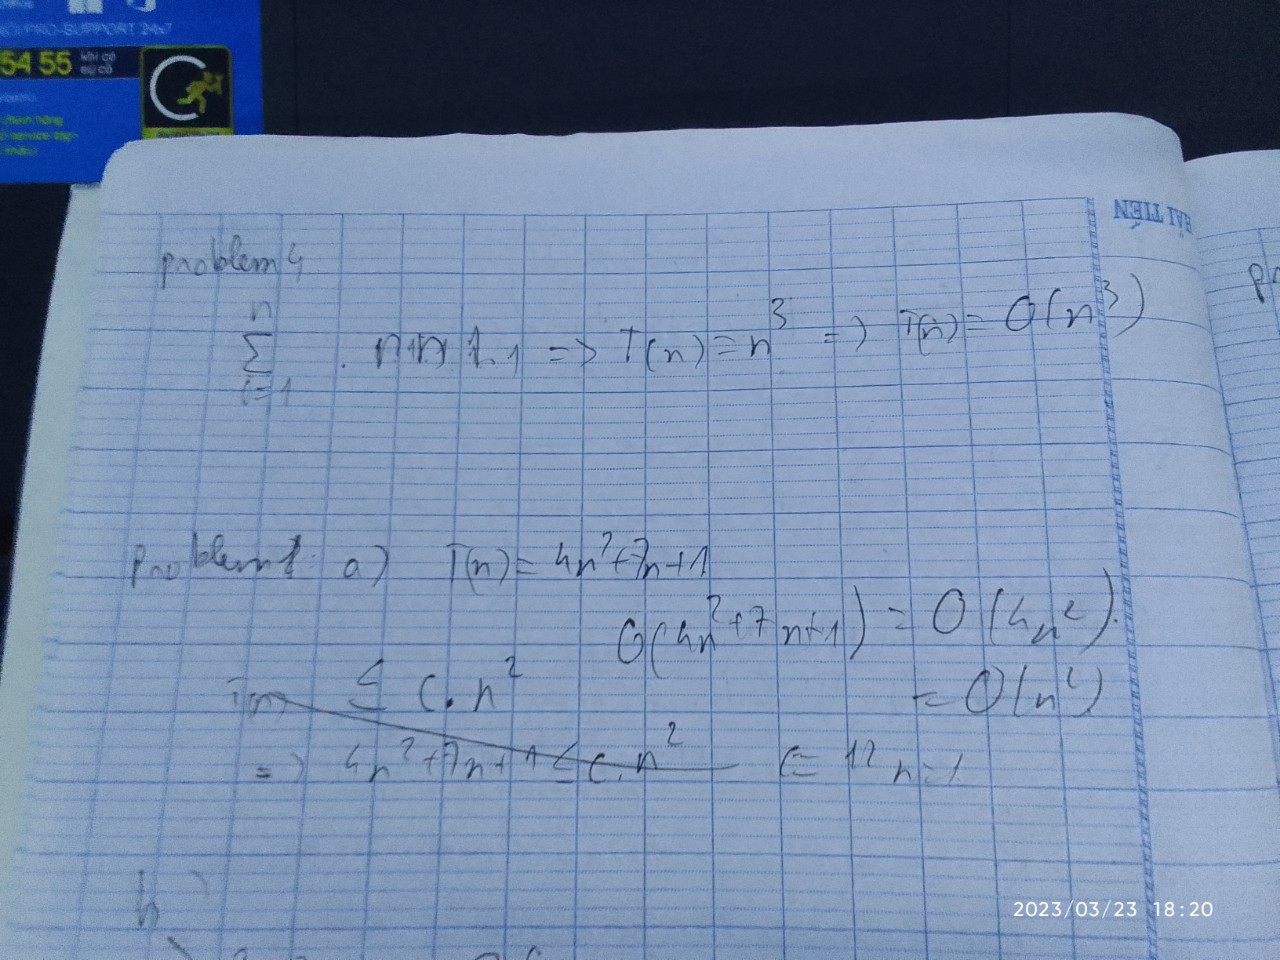 PRO-SUPPORT 24x7
54 55 khi có sự cố
HẢI TIẾN
problem 4
n
∑ . n.n.1.1 => T(n) = n³ => T(n) = O(n³)
i=1
problem 1: a) T(n) = 4n²+7n+1
O(4n²+7n+1) = O(4n²).
T(n) ≤ C.n² = O(n²)
=> 4n²+7n+1 ≤ C.n² C = 12 n=1
b)
2023/03/23 18:20